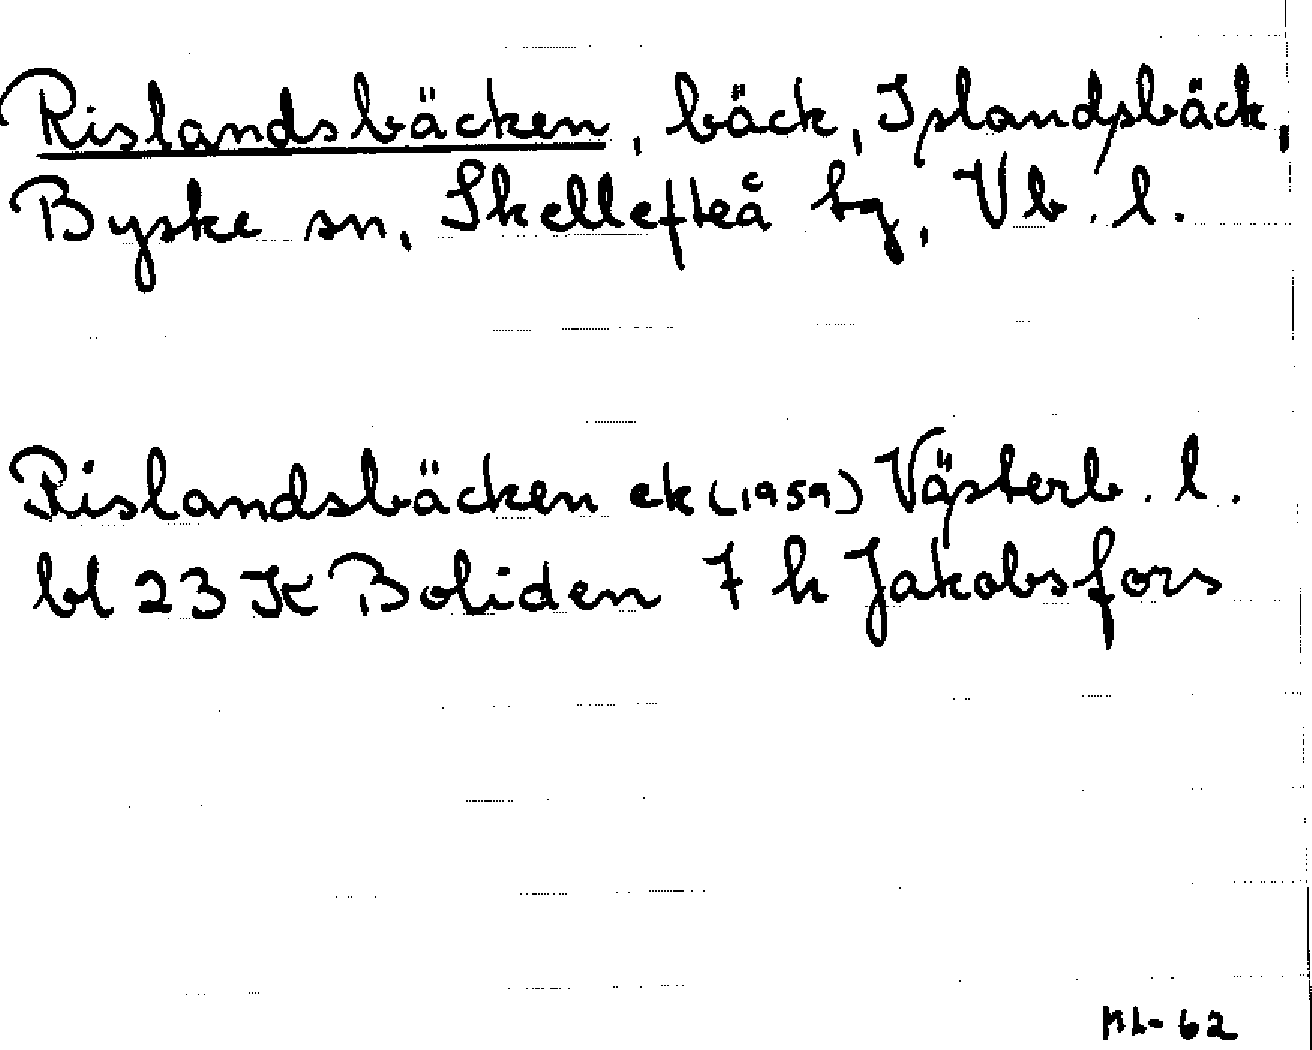 Rislandsbäcken, bäck, Islandsbäck,
Byske sn, Skellefteå tg, Vb. l.
Rislandsbäcken ek (1959) Västerb. l.
bl 23 K Boliden 7 h Jakobsfors
ML-62